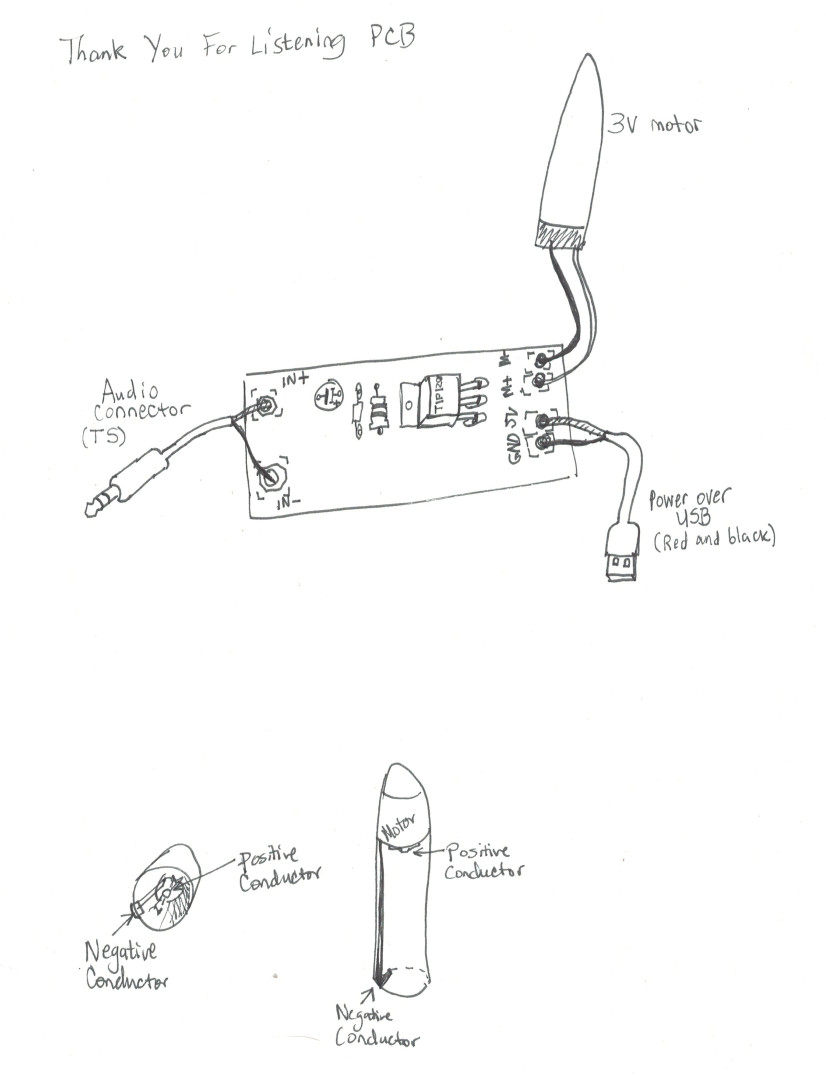 Thank You For Listening PCB
3V motor
Audio
connector
(TS)
IN+
IN-
TIP120
M-
M+
5V
GND
Power over
USB
(Red and black)
Motor
Positive
Conductor
Negative
Conductor
Positive
Conductor
Negative
Conductor